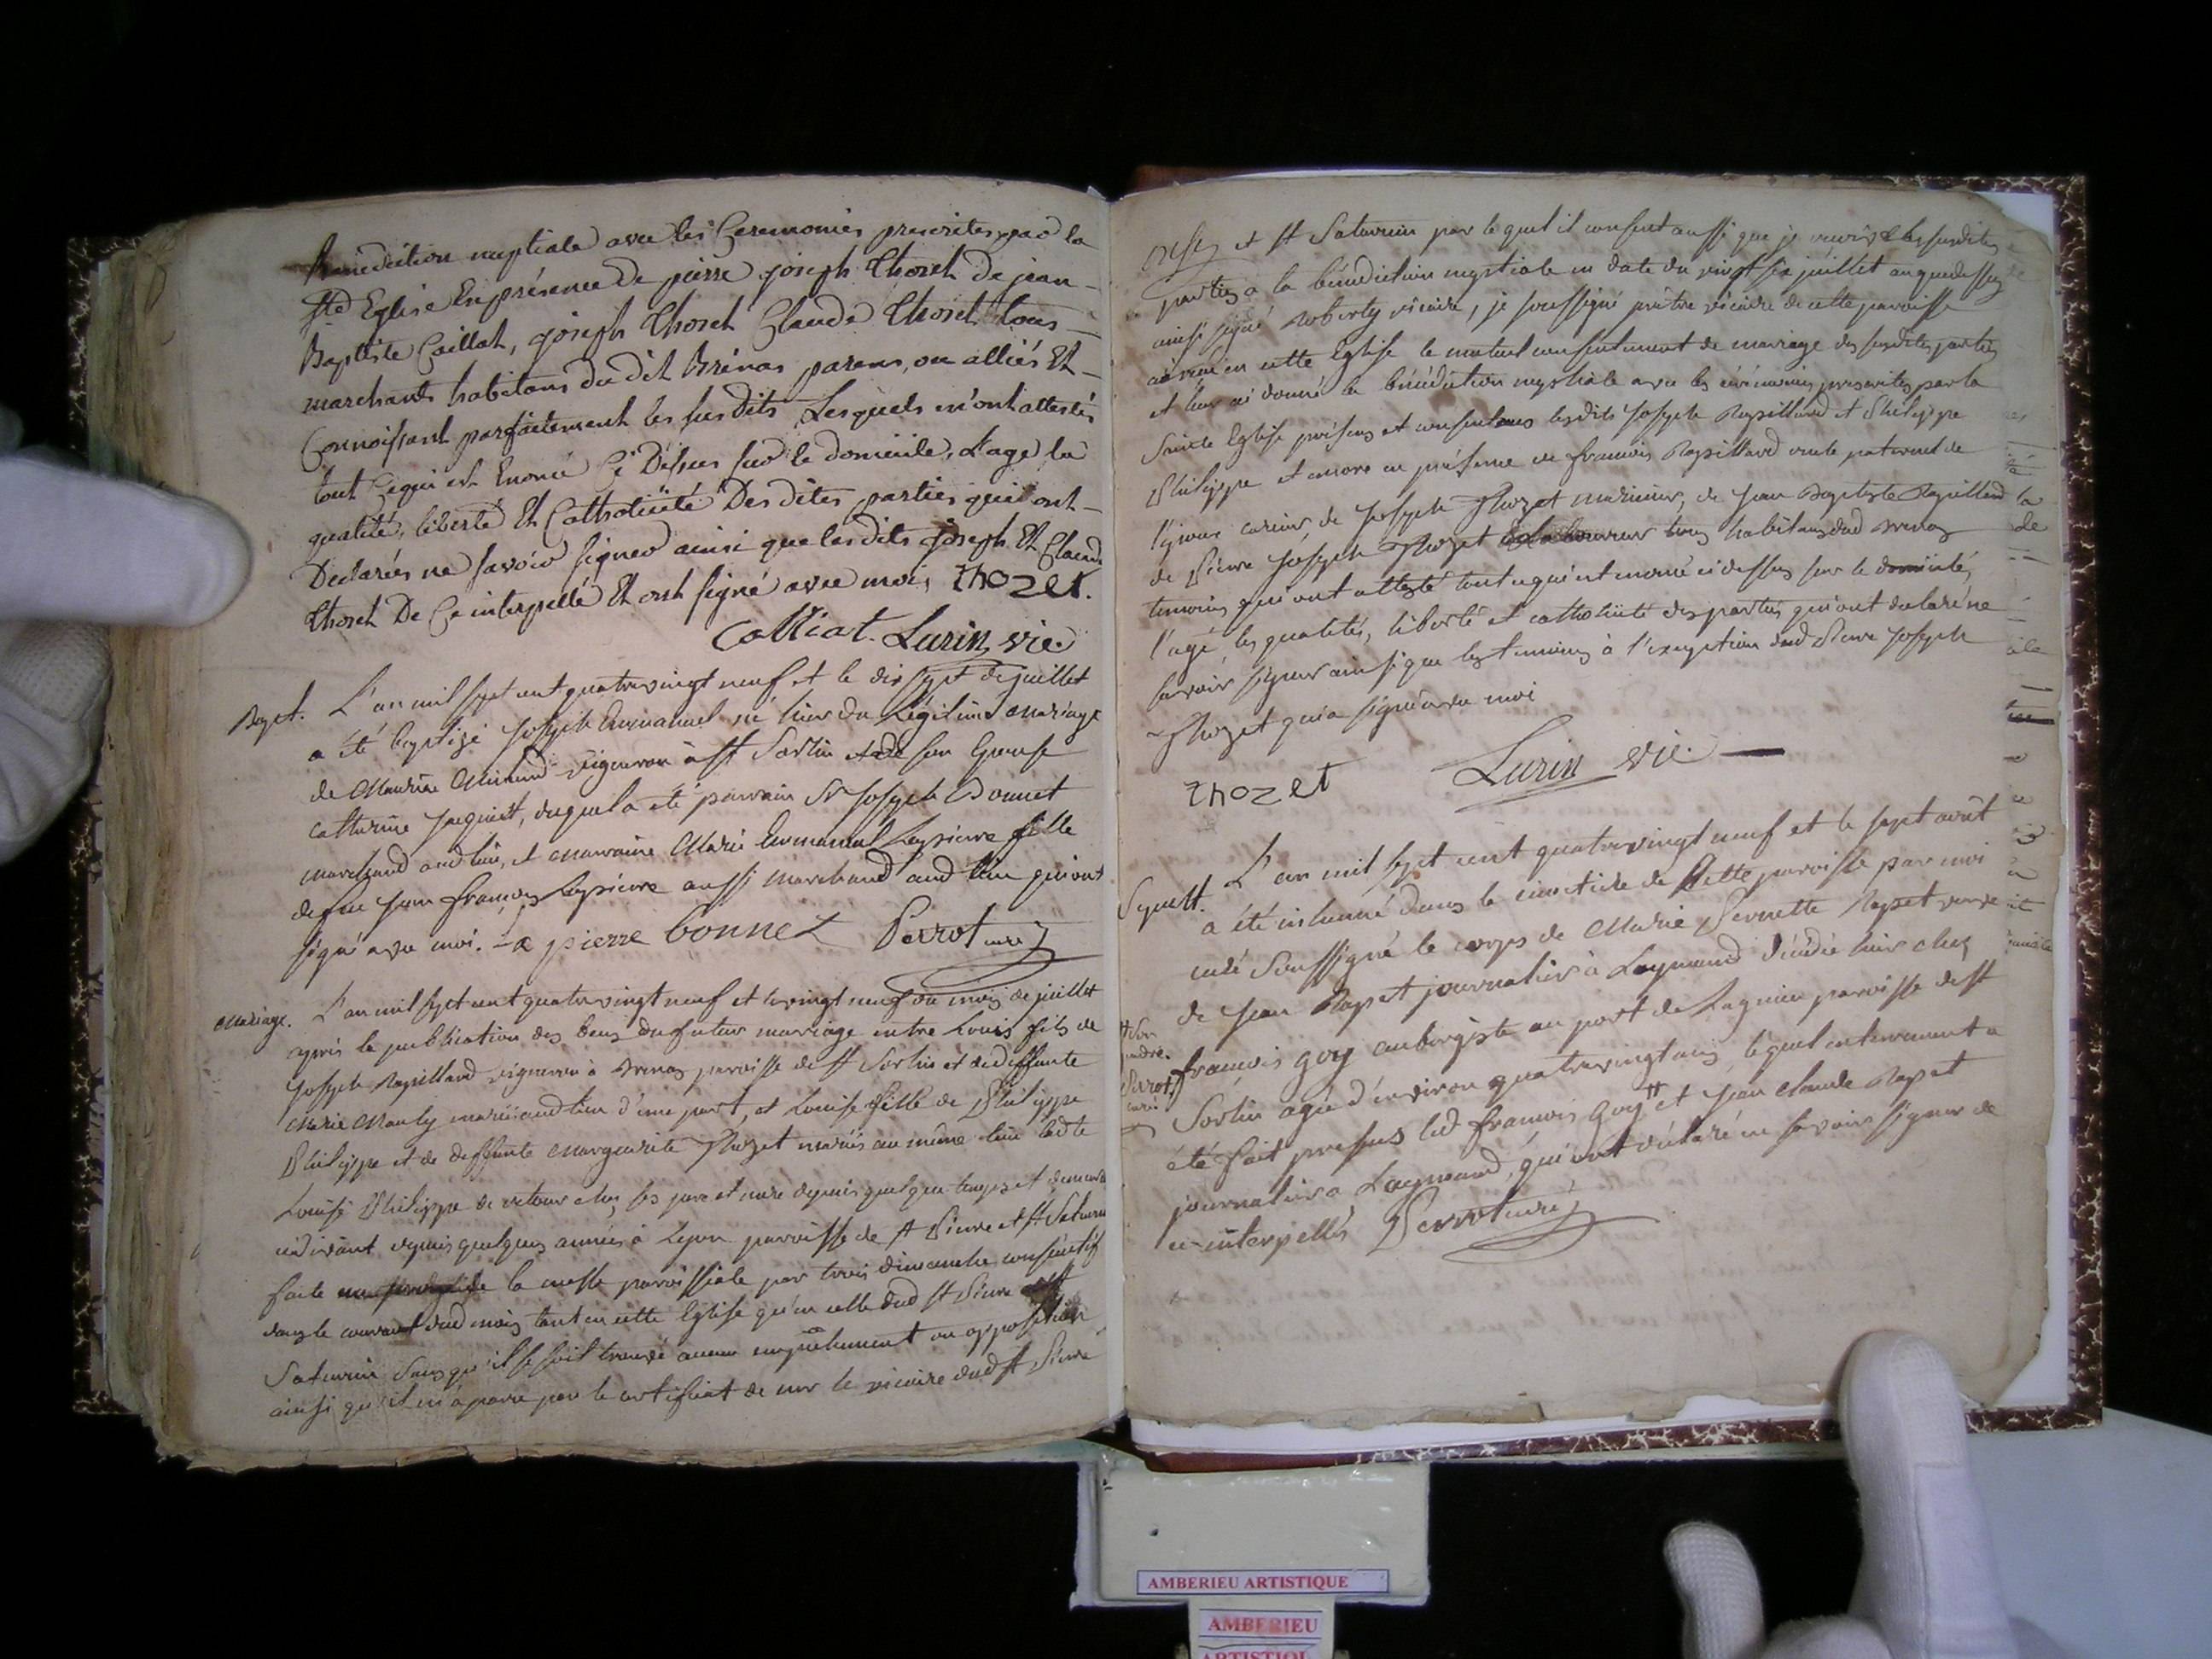 Bénédiction nuptiale avec les Ceremonies prescrites par la
Ste Eglise En présence De pierre joseph Thozet De jean
Baptiste Caillat, joseph Thozet Claude Thozet tous
marchands habitans du dit Brénas parens, ou alliés Et
Connoissant parfaitement les sus dits Lesquels m'ont attestés
tout Ce qui est Enoncé Ci Dessus sur le domicile, L'age la
qualité, liberté Et Catholicité Des dites parties qui ont
Déclarées ne savoir signer ainsi que les dits joseph Et Claude
Thozet De Ce interpellé Et ont signé avec moi, thozet.
Calliat. Lurin vic.
Bapt. L'an mil sept cent quatrevingt neuf et le dix sept de juillet
a été baptisé Joseph Emmanuel né hier du Légitime mariage
de Maurice vigneron à St Sorlin et de son Epouse
Catherine Jaquinet, duquel a été parrain Sr Joseph Bonnet
marchand aud lieu, et marraine Marie Emmanuel Lapierre fille
de feu Jean françois Lapierre aussi marchand aud lieu qui ont
signé avec moi. La pierre bonnet Perrot curé
Mariage. L'an mil sept cent quatrevingt neuf et le vingt neuf du mois de juillet
après la publication des bans du futur mariage entre Louis fils de
Joseph Rapillard vigneron à Brenas paroisse de St Sorlin et de deffunte
Marie mariés aud lieu d'une part, et Louise fille de Philippe
Philippe et de deffunte Marguerite Thozet mariés au même lieu lad te
Louise Philippe de retour chez ses pere et mere depuis quelque temps et demeurant
cidevant depuis quelques années à Lyon paroisse de St Pierre et St Saturnin
faite la messe paroissiale par trois dimanches consécutifs
dans le courant dud mois tant en cette Eglise qu'en celle dud St Pierre et St
Saturnin sans qu'il se soit trouvé aucun empêchement ou opposition
ainsi qu'il m'a paru par le certificat de mr le vicaire dud St Pierre
et St Saturnin par lequel il consent aussi que je reçoive les susdites
parties a la bénédiction nuptiale en date du vingt six juillet an que dessus
ainsi signé Roberty vicaire, je soussigné prêtre vicaire de cette paroisse
ai reçu en cette Eglise le mutuel consentement de mariage des susdites parties
et leur ai donné la bénédiction nuptiale avec les cérémonies prescrites par la
Sainte Eglise présens et consentans lesdits Joseph Rapillard et Philippe
Philippe et encore en présence de françois Rapillard oncle paternel de
l'époux de Joseph Thozet marinier, de Jean Baptiste Rapillard
de Pierre Joseph Thozet tous habitans dud Brenas
temoins qui ont attesté tout ce qui est enoncé ci dessus sur le domicile,
l'age, les qualités, liberté et catholicité des parties qui ont declaré ne
savoir signer ainsi que les temoins à l'exception dud Pierre Joseph
Thozet qui a signé avec moi
thozet Lurin vic.
Sepult. L'an mil sept cent quatrevingt neuf et le sept août
a été inhumé dans le cimetiere de cette paroisse par moi
curé soussigné le corps de Marie Pernette Rapet veuve
de Jean Rapet journalier à Laymand décédée hier chez
françois Goy aubergiste au port de Lagnieu paroisse de St
Sorlin agée d'environ quatrevingt ans lequel enterrement a
été fait presens led françois Goy # et Jean Claude Rapet
journalier a Laymand, qui ont déclaré ne savoir signer de
ce interpellés Perrot curé
# son
gendre.
Perrot
curé
AMBERIEU ARTISTIQUE
AMBERIEU
ARTISTIQUE